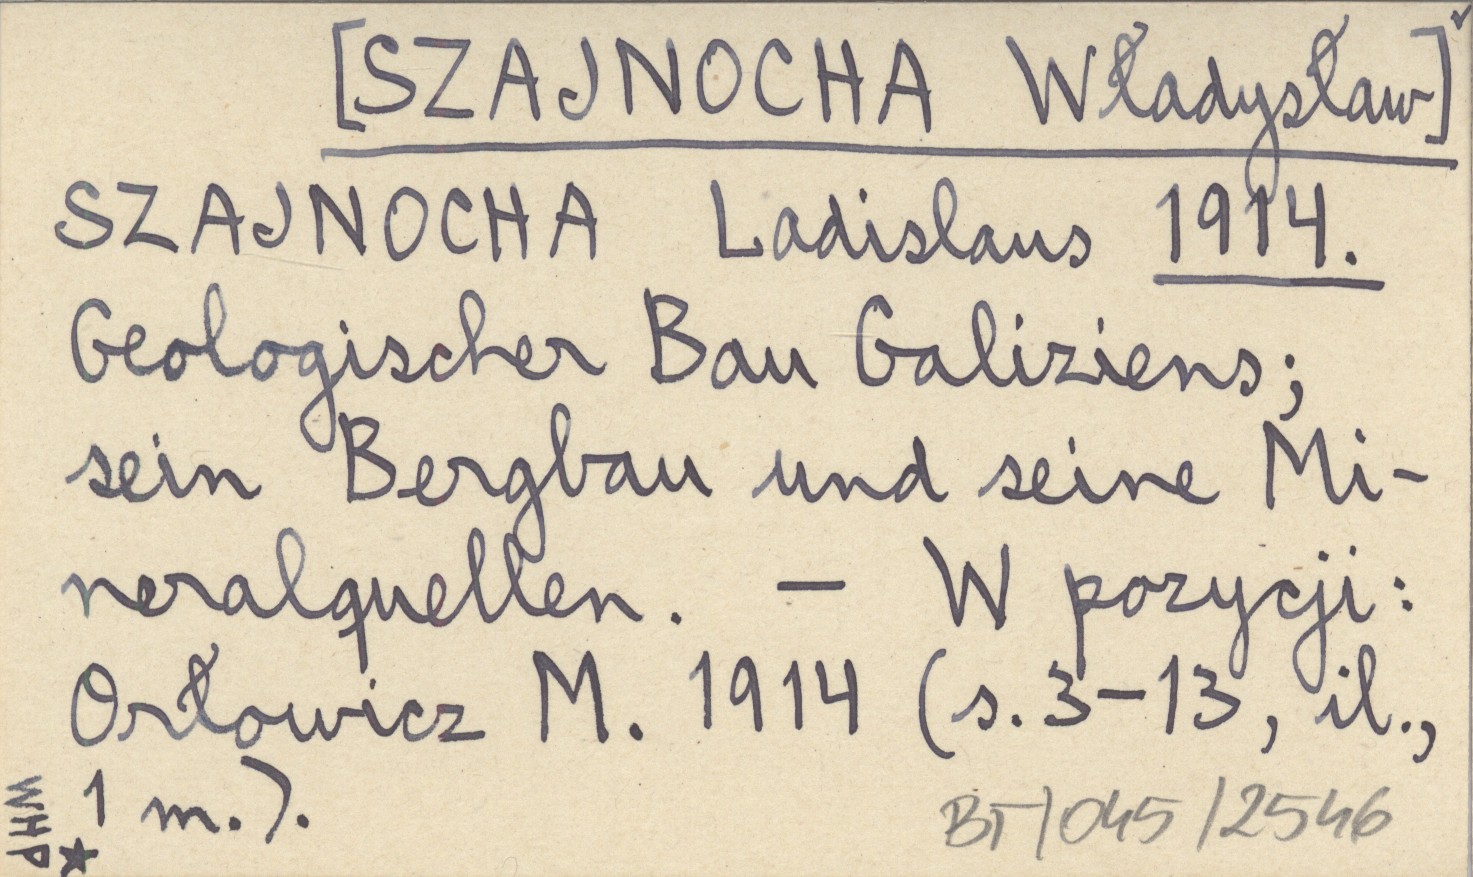 [SZAJNOCHA Władysław]
SZAJNOCHA Ladislaus 1914.
Geologischer Bau Galiziens;
sein Bergbau und seine Mi-
neralquellen. – W pozycji:
Orłowicz M. 1914 (s. 3–13, il.,
1 m.).
BT/045/2546
WHP